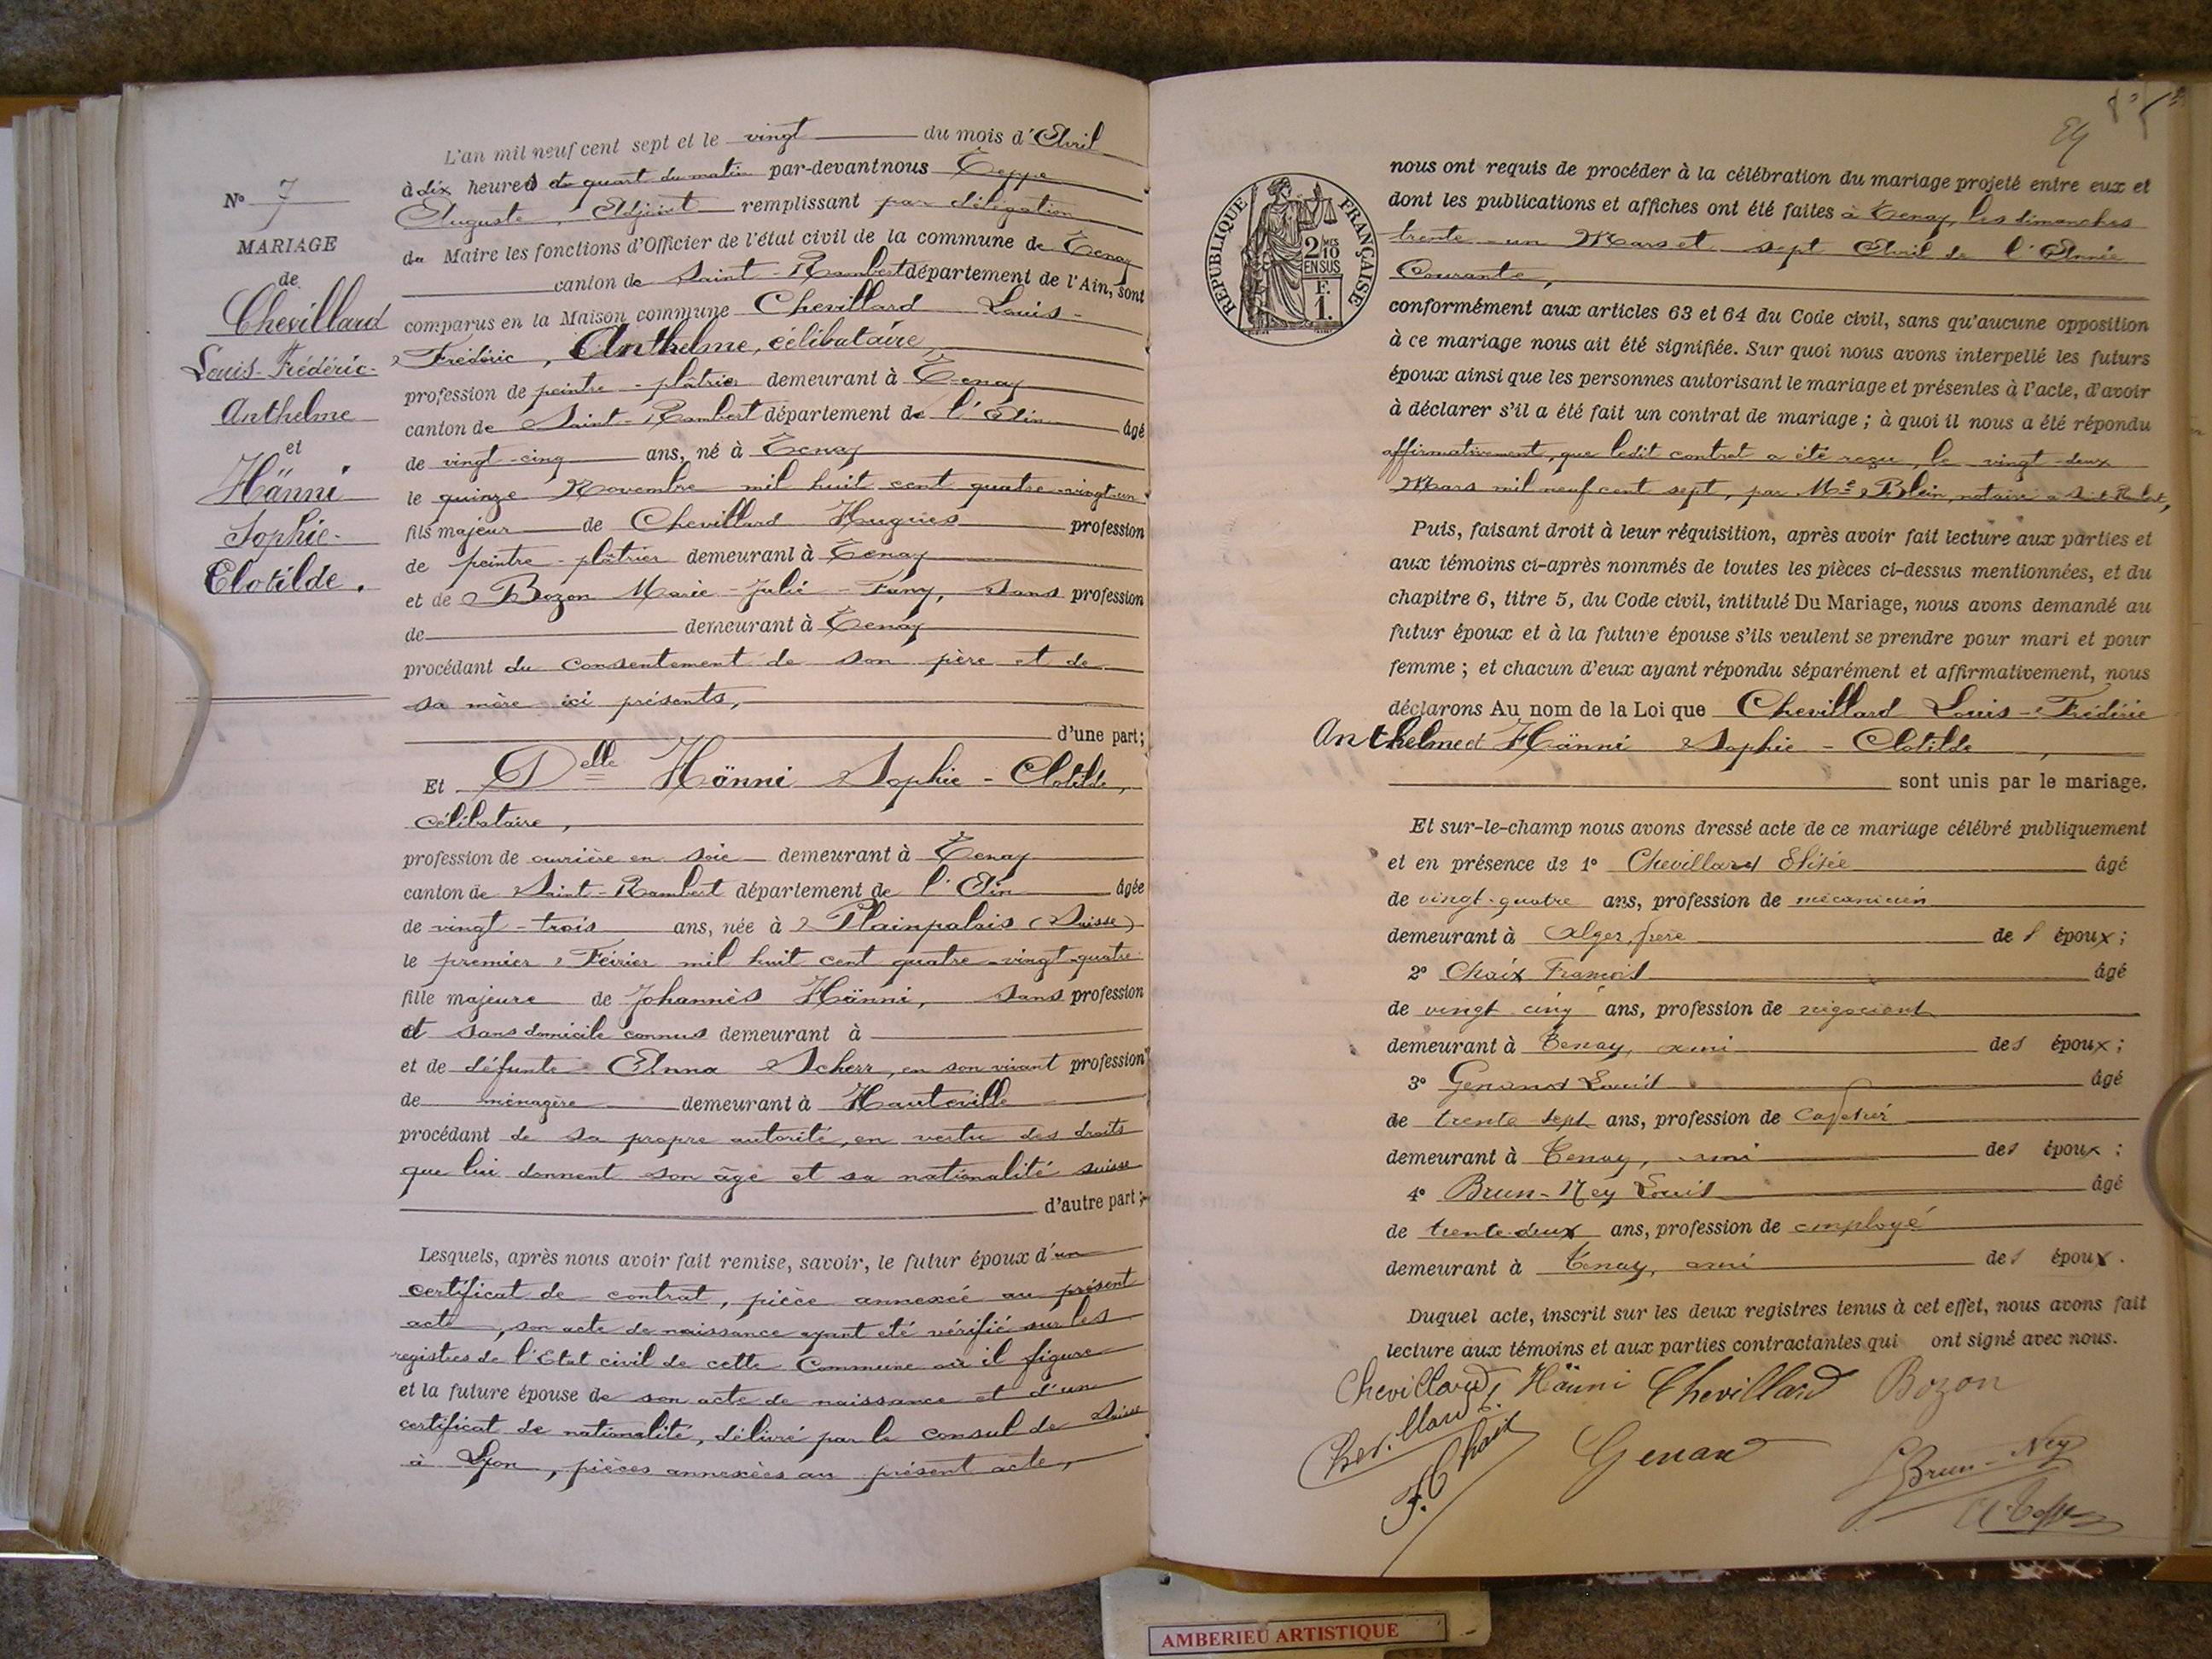 L'an mil neuf cent sept et le vingt du mois d'Avril
à dix heures et quart du matin par-devant nous Teppe
Auguste, Adjoint remplissant par délégation
du Maire les fonctions d'Officier de l'état civil de la commune de Tenay
canton de Saint-Rambert département de l'Ain, sont
comparus en la Maison commune Chevillard Louis-
Frédéric, Anthelme, célibataire,
profession de peintre-plâtrier demeurant à Tenay
canton de Saint-Rambert département de l'Ain âgé
de vingt-cinq ans, né à Tenay
le quinze Novembre mil huit cent quatre-vingt-un
fils majeur de Chevillard Hugues profession
de peintre-plâtrier demeurant à Tenay
et de Bozon Marie-Julie-Fany, sans profession
de demeurant à Tenay
procédant du consentement de son père et de
sa mère ici présents,
d'une part;
Et Delle Hänni Sophie-Clotilde,
célibataire,
profession de ouvrière en soie demeurant à Tenay
canton de Saint-Rambert département de l'Ain âgée
de vingt-trois ans, née à Plainpalais (Suisse)
le premier Février mil huit cent quatre-vingt-quatre
fille majeure de Johannès Hänni, sans profession
et sans domicile connus demeurant à
et de défunte Anna Scherr, en son vivant profession
de ménagère demeurant à Hauteville
procédant de sa propre autorité, en vertu des droits
que lui donnent son âge et sa nationalité suisse
d'autre part;
Lesquels, après nous avoir fait remise, savoir, le futur époux d'un
certificat de contrat, pièce annexée au présent
acte, son acte de naissance ayant été vérifié sur les
registres de l'Etat civil de cette Commune où il figure
et la future épouse de son acte de naissance et d'un
certificat de nationalité, délivré par le consul de Suisse
à Lyon, pièces annexées au présent acte,
N° 7
MARIAGE
de
Chevillard
Louis-Frédéric-
Anthelme
et
Hänni
Sophie-
Clotilde.
nous ont requis de procéder à la célébration du mariage projeté entre eux et
dont les publications et affiches ont été faites à Tenay, les dimanches
trente-un Mars et sept Avril de l'Année
Courante,
conformément aux articles 63 et 64 du Code civil, sans qu'aucune opposition
à ce mariage nous ait été signifiée. Sur quoi nous avons interpellé les futurs
époux ainsi que les personnes autorisant le mariage et présentes à l'acte, d'avoir
à déclarer s'il a été fait un contrat de mariage; à quoi il nous a été répondu
affirmativement, que ledit contrat a été reçu, le vingt-deux
Mars mil neuf cent sept, par Me Blein, notaire à St-Rambert,
Puis, faisant droit à leur réquisition, après avoir fait lecture aux parties et
aux témoins ci-après nommés de toutes les pièces ci-dessus mentionnées, et du
chapitre 6, titre 5, du Code civil, intitulé Du Mariage, nous avons demandé au
futur époux et à la future épouse s'ils veulent se prendre pour mari et pour
femme; et chacun d'eux ayant répondu séparément et affirmativement, nous
déclarons Au nom de la Loi que Chevillard Louis-Frédéric
Anthelme et Hänni Sophie-Clotilde,
sont unis par le mariage.
Et sur-le-champ nous avons dressé acte de ce mariage célébré publiquement
et en présence de 1° Chevillard Elisée âgé
de vingt-quatre ans, profession de mécanicien
demeurant à Alger, frère de l'époux;
2° Chaix François âgé
de vingt cinq ans, profession de négociant
demeurant à Tenay, ami des époux;
3° Genand Louis âgé
de trente sept ans, profession de cafetier
demeurant à Tenay, ami des époux;
4° Brun-Ney Louis âgé
de trente-deux ans, profession de employé
demeurant à Tenay, ami des époux.
Duquel acte, inscrit sur les deux registres tenus à cet effet, nous avons fait
lecture aux témoins et aux parties contractantes qui ont signé avec nous.
Chevillard Hänni Chevillard Bozon
Chevillard E.
F. Chaix Genand L Brun-Ney
A Teppe
RÉPUBLIQUE FRANÇAISE
2 MES
10
EN SUS
F.
1.
AMBERIEU ARTISTIQUE